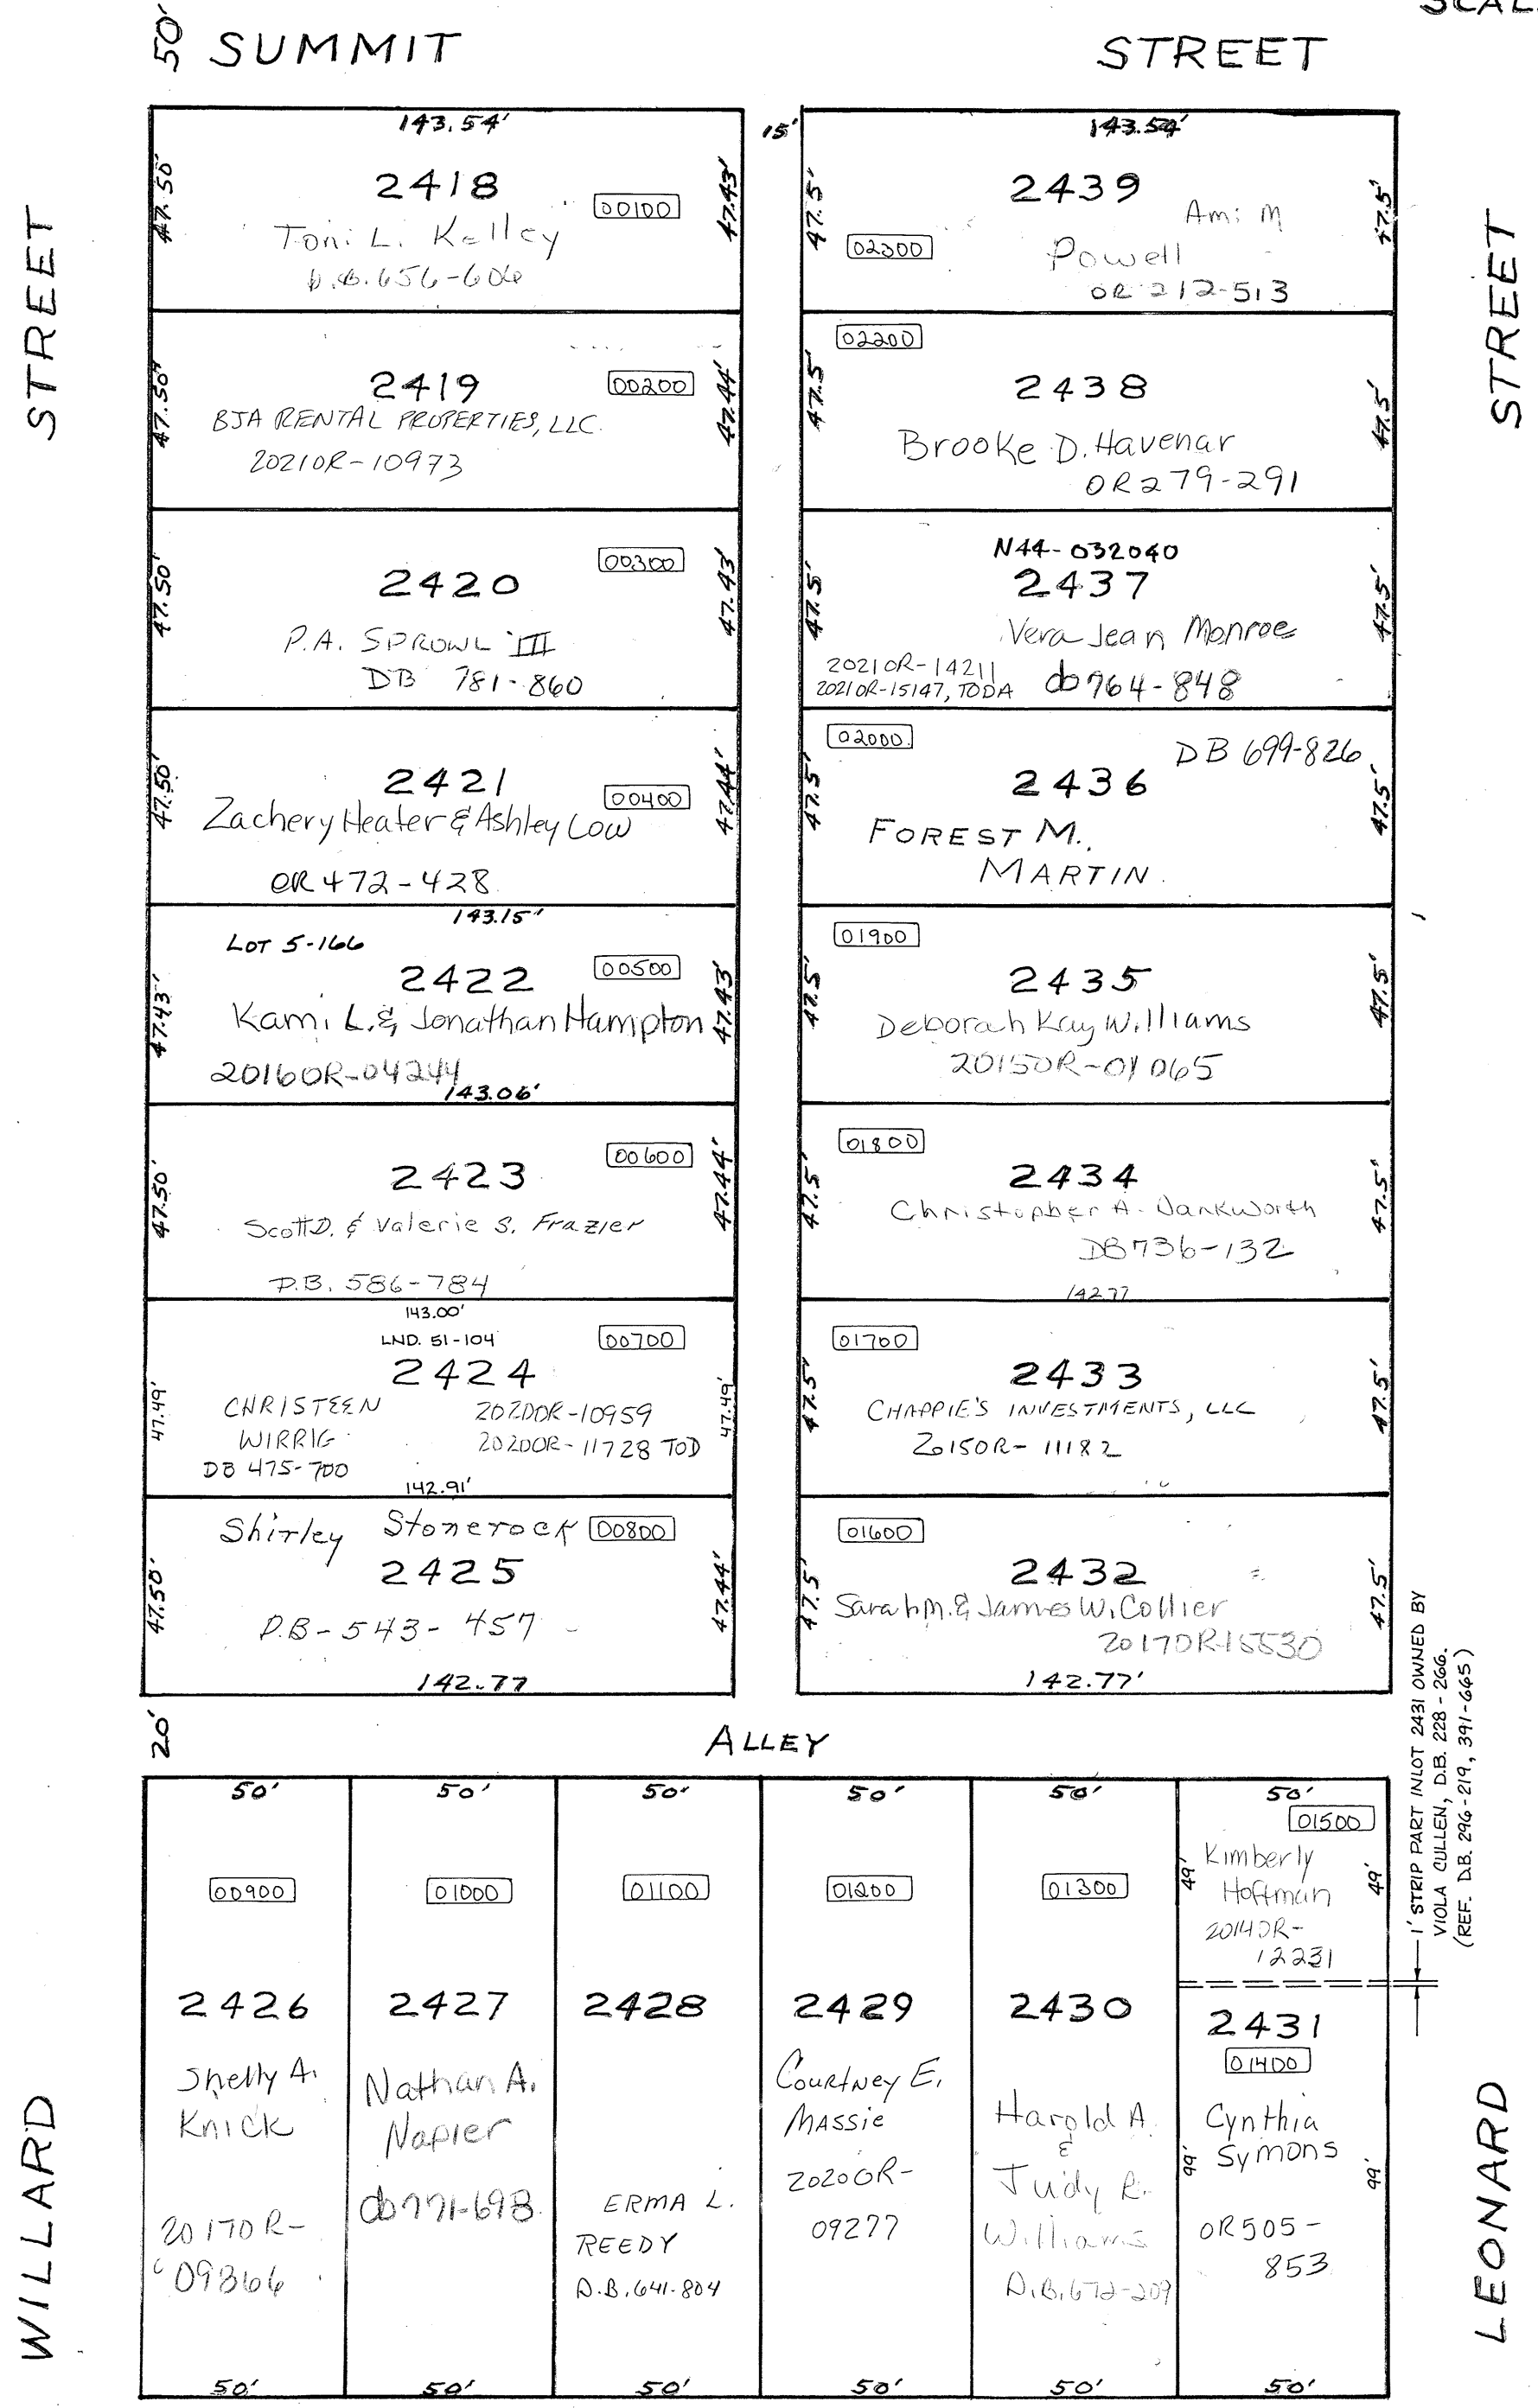 SCAL
50' SUMMIT STREET
STREET
STREET
15'
143.54'
47.50'
2418
00100
47.43'
Toni L. Kelley
D.B. 656-606
47.50'
2419
00200
47.44'
BJA RENTAL PROPERTIES, LLC.
2021OR-10973
47.50'
2420
00300
47.43'
P.A. SPROWL III
DB 781-860
47.50'
2421
00400
47.44'
Zachery Heater & Ashley Low
OR 472-428
143.15'
LOT 5-166
47.43'
2422
00500
47.43'
Kami L. & Jonathan Hampton
2016OR-04244
143.06'
47.50'
2423
00600
47.44'
Scott D. & Valerie S. Frazier
D.B. 586-784
143.00'
LND. 51-104
00700
2424
47.49'
47.49'
CHRISTEEN
WIRRIG
DB 475-700
2020OR-10959
2020OR-11728 TOD
142.91'
Shirley Stonerock
00800
2425
47.50'
47.44'
D.B-543-457
142.77
143.54'
47.5'
2439
47.5'
02300
Ami M
Powell
OR 212-513
02200
47.5'
2438
47.5'
Brooke D. Havenar
OR 279-291
N44-032040
47.5'
2437
47.5'
Vera Jean Monroe
2021OR-14211
2021OR-15147, TODA
db 764-848
02000
DB 699-826
47.5'
2436
47.5'
FOREST M.
MARTIN
01900
47.5'
2435
47.5'
Deborah Kay Williams
2015OR-01065
01800
47.5'
2434
47.5'
Christopher A. Dankworth
DB 736-132
142.77
01700
47.5'
2433
47.5'
CHAPPIE'S INVESTMENTS, LLC
2015OR-11182
01600
47.5'
2432
47.5'
Sarah M. & James W. Collier
2017OR-15530
142.77'
1' STRIP PART INLOT 2431 OWNED BY
VIOLA CULLEN, D.B. 228-266.
(REF. D.B. 296-219, 391-665)
20'
ALLEY
50'
00900
2426
Shelly A.
Knick
2017OR-
09366
50'
50'
01000
2427
Nathan A.
Napier
db 771-698
50'
50'
01100
2428
ERMA L.
REEDY
D.B. 641-804
50'
50'
01200
2429
Courtney E.
Massie
2020OR-
09277
50'
50'
01300
2430
Harold A.
&
Judy R.
Williams
D.B. 672-209
50'
50'
01500
49'
49'
Kimberly
Hoffman
2014OR-
12231
2431
01400
Cynthia
Symons
99'
99'
OR 505-
853
50'
WILLARD
LEONARD